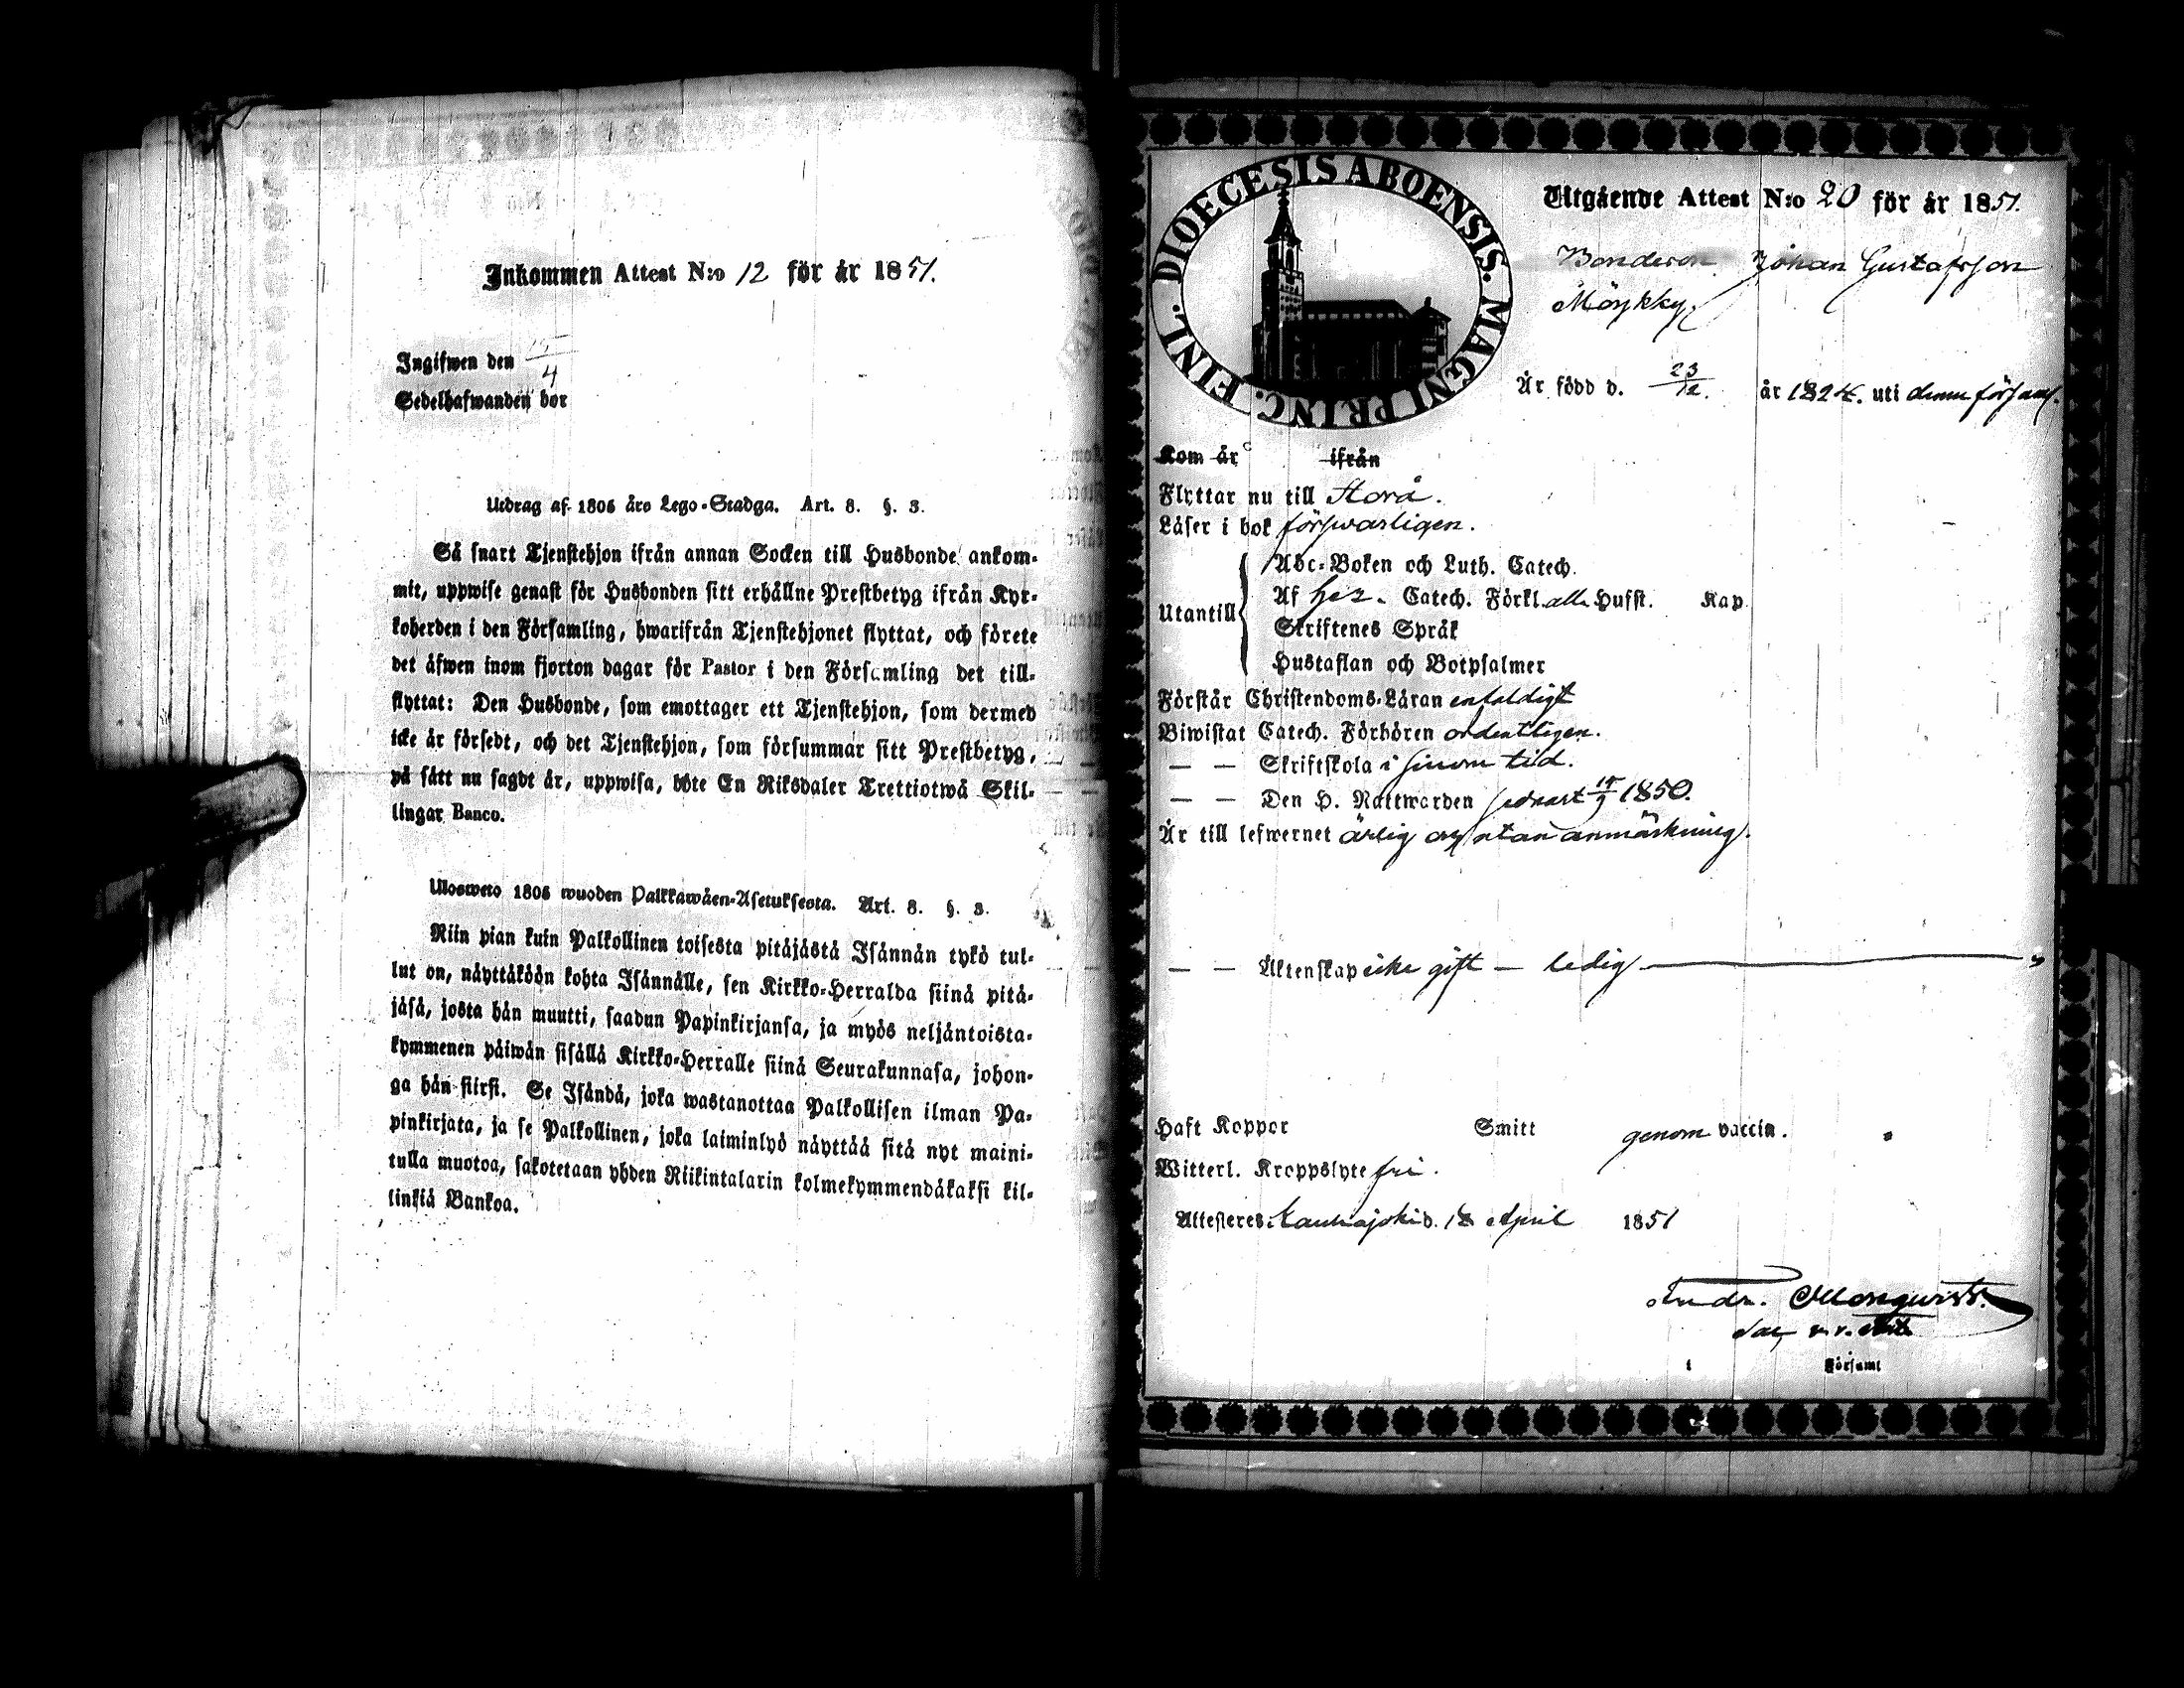 Inkommen Attest N:o 12 för år 1851.
Ingifwen den 15/4
Sedelhafwanden bor
Utdrag af 1805 års Lego-Stadga. Art. 8. §. 3.
Så snart Tjenstehjon ifrån annan Socken till Husbonde ankom-
mit, uppwise genast för Husbonden sitt erhållne Prestbetyg ifrån Kyr-
koherden i den Församling, hwarifrån Tjenstehjonet flyttat, och förete
det äfwen inom fjorton dagar för Pastor i den Församling det till-
flyttat: Den Husbonde, som emottager ett Tjenstehjon, som dermed
icke är försedt, och det Tjenstehjon, som försummar sitt Prestbetyg,
på sätt nu sagdt är, uppwisa, böte En Riksdaler Trettiotwå Skil-
lingar Banco.
Ulosweto 1805 wuoden Palkkawäen-Asetuksesta. Art. 8. §. 3.
Niin pian kuin Palkollinen toisesta pitäjästä Isännän tykö tul-
lut on, näyttäköön kohta Isännälle, sen Kirkko-Herralda siinä pitä-
jäsä, josta hän muutti, saadun Papinkirjansa, ja myös neljäntoista-
kymmenen päiwän sisällä Kirkko-Herralle siinä Seurakunnasa, johon-
ga hän siirsi. Se Isändä, joka wastanottaa Palkollisen ilman Pa-
pinkirjata, ja se Palkollinen, joka laiminlyö näyttää sitä nyt maini-
tulla muotoa, sakotetaan yhden Riikintalarin kolmekymmendäkaksi kil-
linkiä Bankoa.
DIOECESIS ABOENSIS. MAGNI PRINC. FINL.
Utgående Attest N:o 20 för år 1851.
Bondeson Johan Gustafsson
Möykky
Är född d. 23/12. år 1824. uti denna församl.
Kom år ifrån
Flyttar nu till Storå.
Läser i bok försvarligen.
Utantill
Abc-Boken och Luth. Catech.
Af Catech. Förkl. alla Hufst. Kap
Skriftenes Språk
Hustaflan och Botpsalmer
Förstår Christendoms-Läran enfaldigt
Biwistat Catech. Förhören ordentligen.
— — Skriftskola i sinom tid.
— — Den H. Nattwarden sednast 1850.
Är till lefwernet ärlig och utan anmärkning.
— — Äktenskap icke gift — ledig
Haft Koppor Smitt genom vaccin.
Witterl. Kroppslyte fri.
Attesteres Kauhajoki d. 12 April 1851
Andr. Monqwist.
Sac. v. v.
i Församl